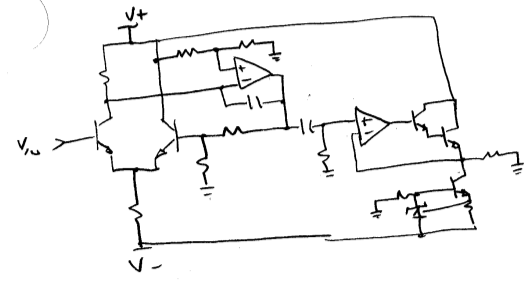 V+
+
−
+
−
VIN
V−